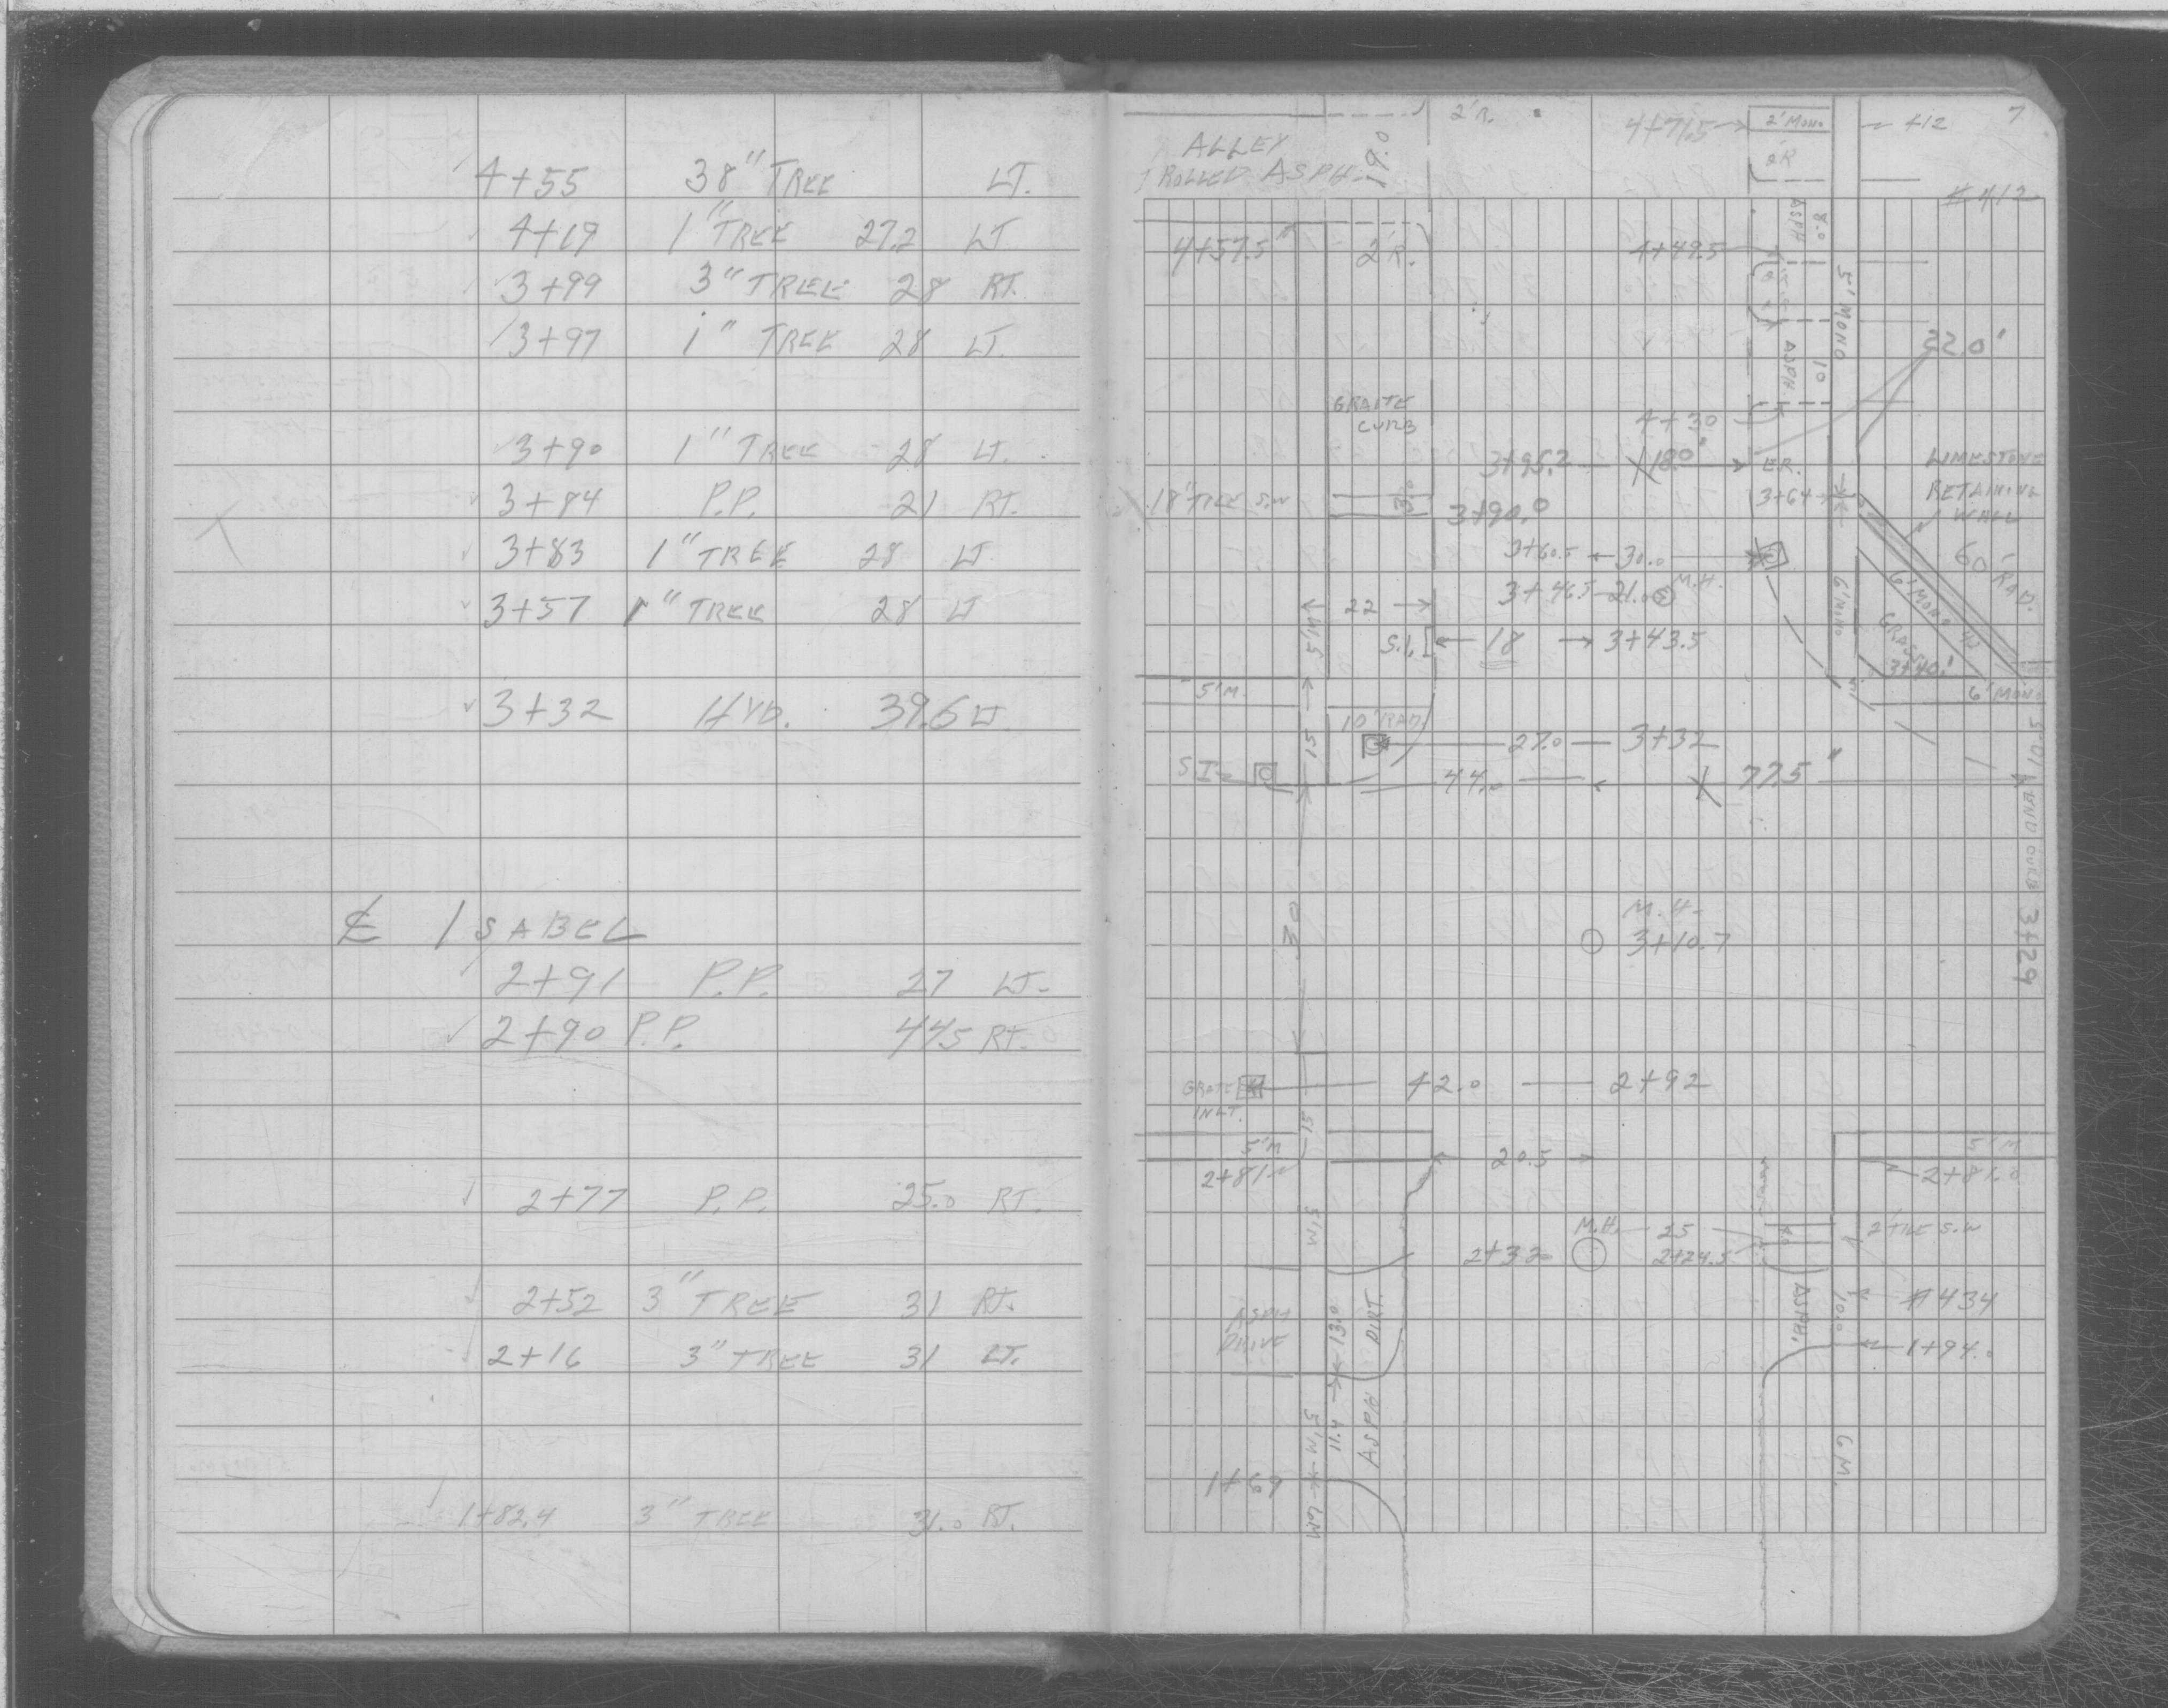 4+55 38" TREE LT.
4+19 1" TREE 27.2 LT
3+99 3" TREE 28 RT.
3+97 1" TREE 28 LT.
3+90 1" TREE 28 LT.
3+84 P.P. 21 RT.
3+83 1" TREE 28 LT.
3+57 1" TREE 28 LT
3+32 HYD. 39.6 LT.
℄ ISABEL
2+91 P.P. 27 LT.
2+90 P.P. 44.5 RT.
2+77 P.P. 25.0 RT.
2+52 3" TREE 31 RT.
2+16 3" TREE 31 LT.
1+82.4 3" TREE 31.0 RT.
7
2'R. 4+71.5 2' MONO 412
ALLEY 19.0 2'R
ROLLED ASPH.
#412
4+57.5 2'R. 4+49.5 ASPH 8.0
5' MONO
ASPH 10
22.0'
GRAITE
CURB
4+30
3+95.2 18.0" E.R.
LIMESTONE
RETAINING
WALL
18" TILE S.W 3+90.0 3+64
3+60.5 30.0
60' RAD.
3+46.5 21.0 M.H.
6' MONO
6' MONO
GRASS
5'M 22
S.I. 18 3+43.5
3+40.1
5'M. 6' MONO
10' RAD.
15 27.0 3+32
S.I. 44.0 77.5"
END CURB 3+29
30
M.H.
3+10.7
GRATE 42.0 2+92
INLT.
15
5'M 20.5 5'M
2+81 2+81.0
5'M
M.H. 25 2' TILE S.W
2+32.0 2+24.5
ASPH
DRIVE
13.0
DIRT.
ASPH.
10.0
#434
1+94.0
11.4 ASPH
5'M
6M.
1+69
6M